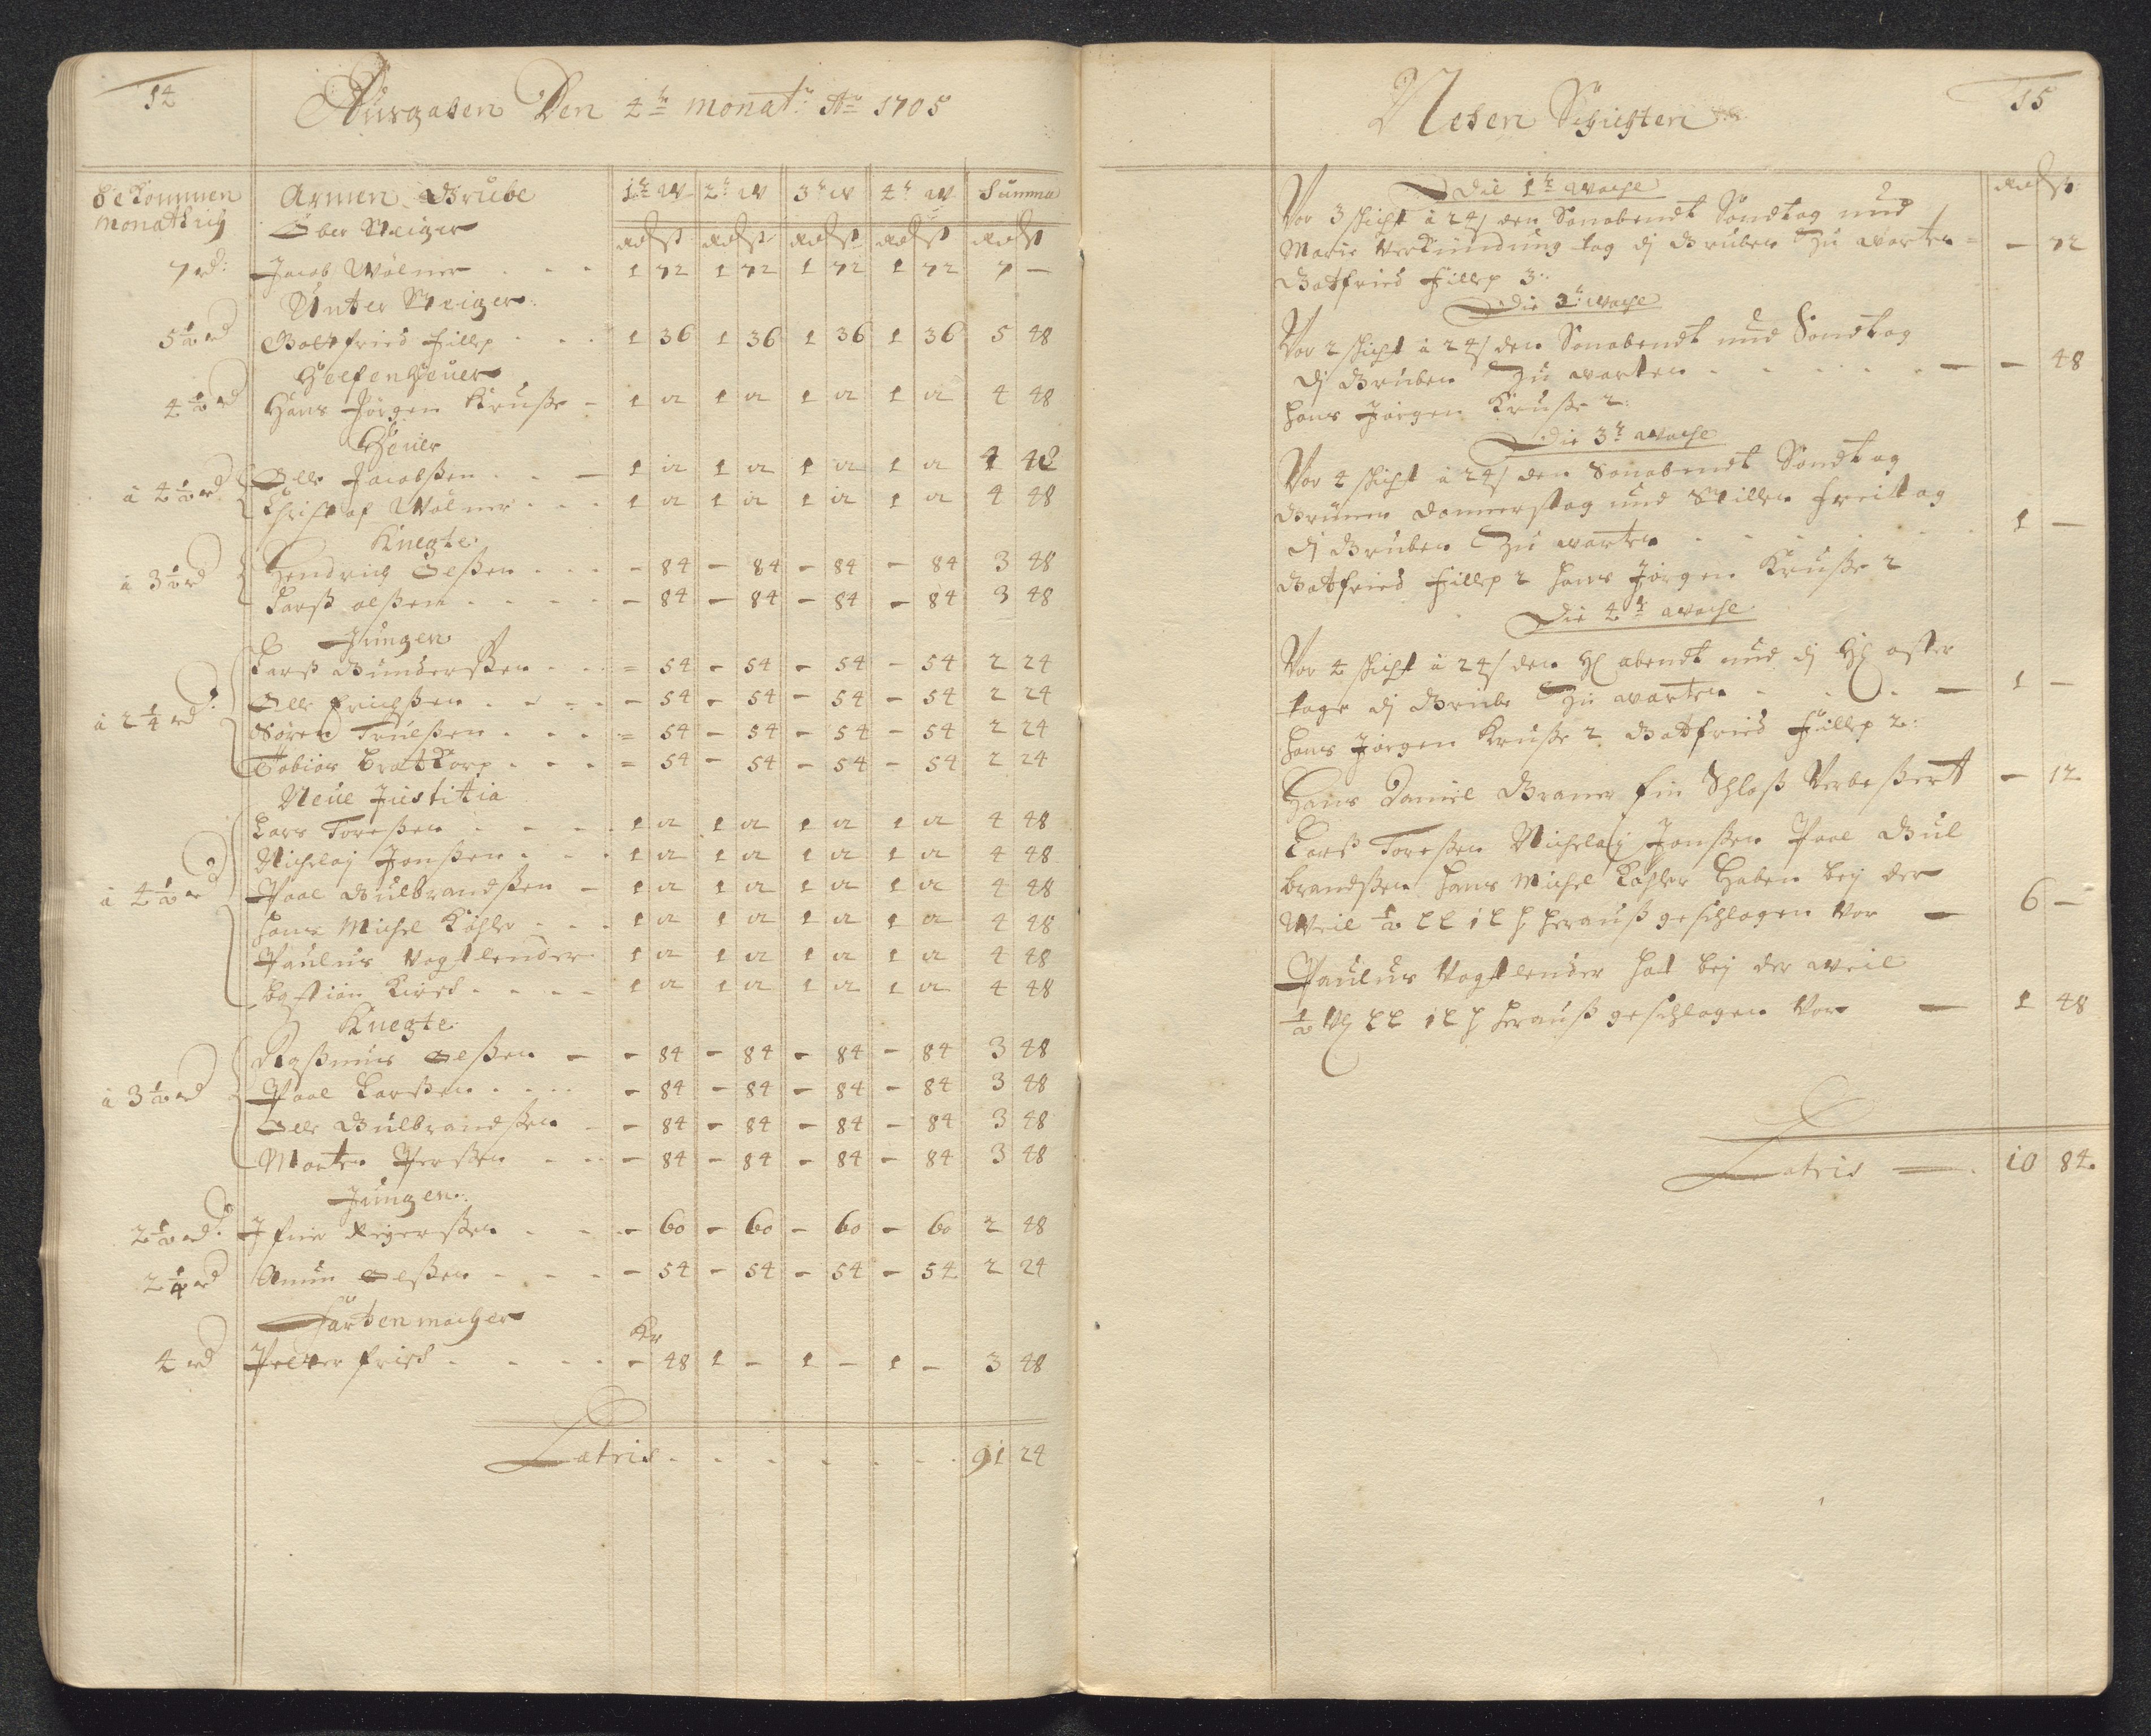 14
Ausgaben Den 4te monat: Ao 1705
Bekommen Armen Grube 1te W 2te W 3te W 4te W Summa
Monathlig Ober Steiger
7 rd: Jacob Wölner 1 72 1 72 1 72 1 72 7 —
Unter Steiger
5½ rd Gottfried fillip 1 36 1 36 1 36 1 36 5 48
Helfenheuer
4½ rd Hans Jörgen Kruße 1 12 1 12 1 12 1 12 4 48
Heuer
à 4½ rd Olle Jacobßen 1 12 1 12 1 12 1 12 4 48
Christof Wölner 1 12 1 12 1 12 1 12 4 48
Knegte
à 3½ rd Hendrich Olßen - 84 - 84 - 84 - 84 3 48
Larß olßen - 84 - 84 - 84 - 84 3 48
Jungen
Larß Gunderßen - 54 - 54 - 54 - 54 2 24
à 2¼ rd Olle Erichßen - 54 - 54 - 54 - 54 2 24
Sören Trulßen - 54 - 54 - 54 - 54 2 24
Tobias Bratkorp - 54 - 54 - 54 - 54 2 24
Neue Justitia
Lars Toreßen 1 12 1 12 1 12 1 12 4 48
Nichelaj Janßen 1 12 1 12 1 12 1 12 4 48
à 4½ rd Paal Gulbrandßen 1 12 1 12 1 12 1 12 4 48
Hans Michel Köhler 1 12 1 12 1 12 1 12 4 48
Paulus Vogtlender 1 12 1 12 1 12 1 12 4 48
Bastian 1 12 1 12 1 12 1 12 4 48
Knegte
Raßmus Olßen - 84 - 84 - 84 - 84 3 48
à 3½ rd Paal Larßen - 84 - 84 - 84 - 84 3 48
Olle Gulbrandßen - 84 - 84 - 84 - 84 3 48
Morten Perßen - 84 - 84 - 84 - 84 3 48
Jungen
2½ rd - 60 - 60 - 60 - 60 2 48
2¼ rd Amun Olßen - 54 - 54 - 54 - 54 2 24
4 rd Kr
- 48 1 - 1 - 1 - 3 48
Latris 91 24
15
Neben Schichten
Die 1te Woche
Vor 3 schicht à 24 s den Sonabendt Sondtag und
Marie Verkundung tag dj Gruben Zu warten - 72
Gotfried fillip 3:
Die 2te Woche
Vor 2 schicht à 24 s den Sonabendt und Sondtag
dj Gruben Zu warten - 48
Hans Jörgen Kruße 2:
Die 3te Woche
Vor 4 schicht à 24 s den Sonabendt Sondtag
Grünen Donnerstag und Stillen freitag
dj Gruben Zu warten 1 -
Gotfried fillip 2 Hans Jörgen Kruße 2
Die 4te Woche
Vor 4 schicht à 24 s den Hl abendt und dj Hl oster
tage dj Grube Zu warten 1 -
Hans Jörgen Kruße 2 Gotfried fillip 2:
Hans Daniel Braner Ein Schloß Verbeßert - 12
Larß Toreßen Nichelaj Janßen Paal Gul
brandßen Hans Michel Köhler Haben bej der
Weil ½ herauß geschlagen Vor 6 -
Paulus Vogtlender hat bej der Weil
½ herauß geschlagen Vor 1 48
Latris 10 84